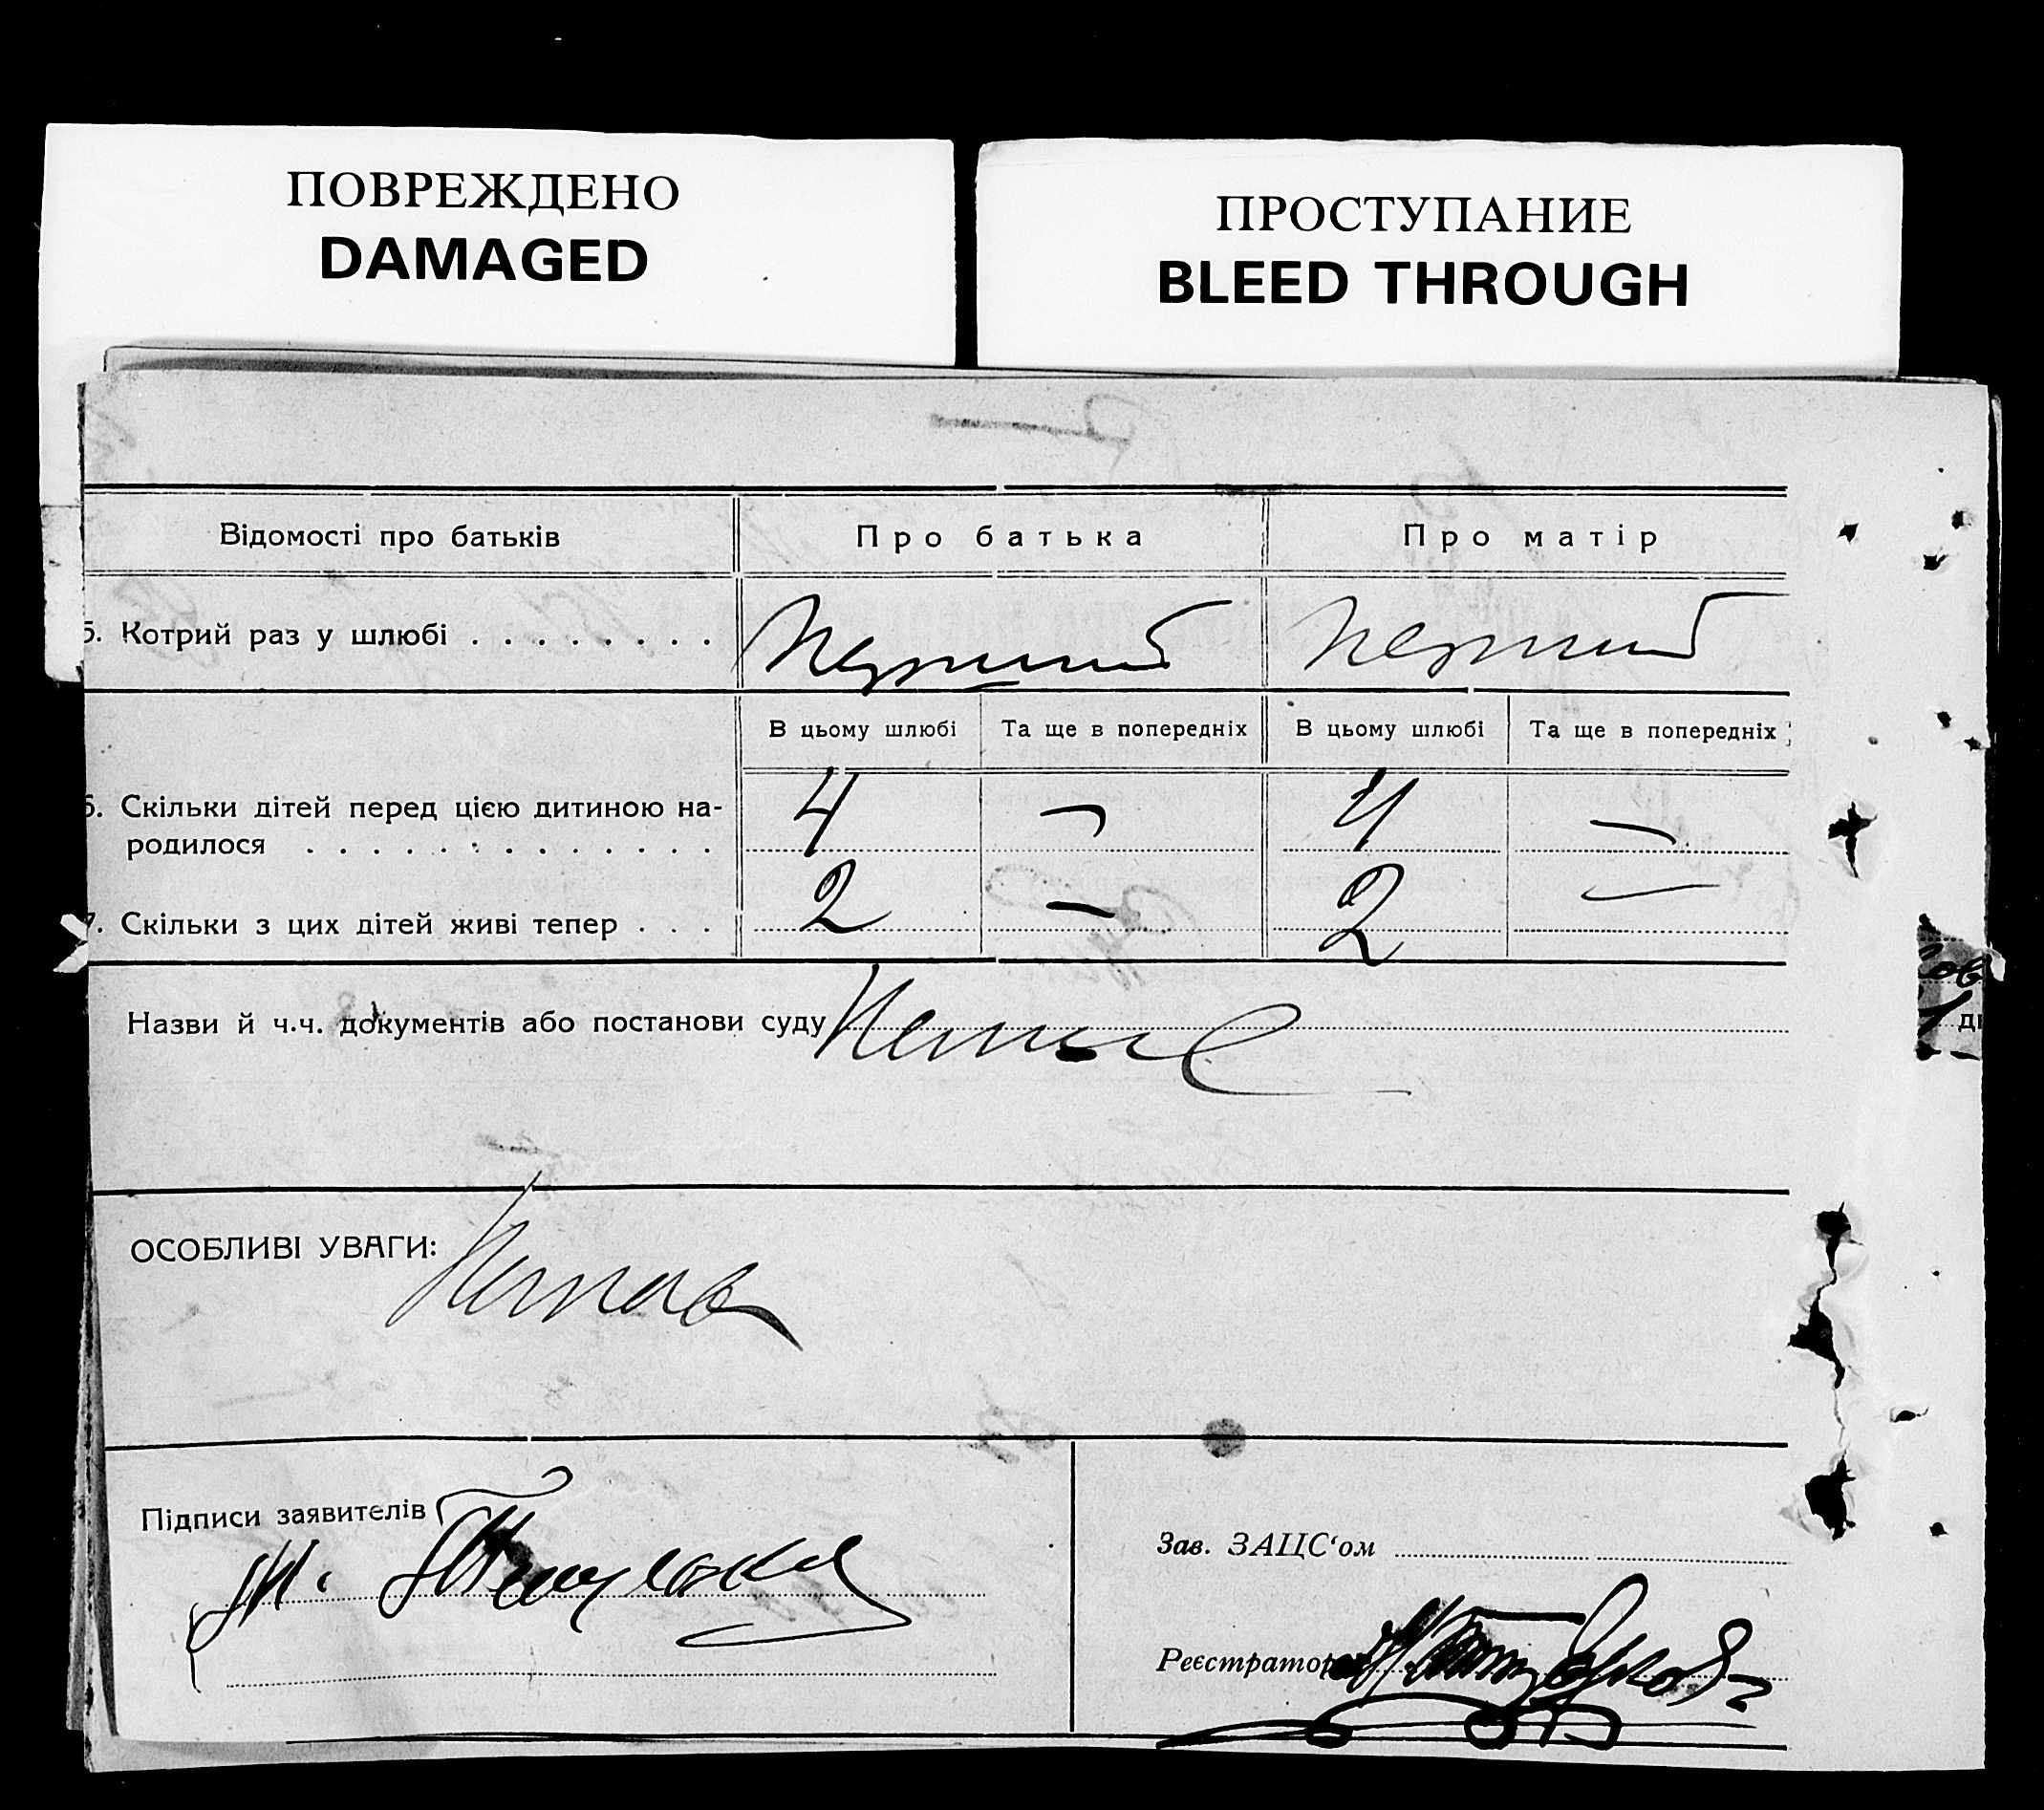 ПОВРЕЖДЕНО
DAMAGED
ПРОСТУПАНИЕ
BLEED THROUGH
Відомості про батьків
Про батька
Про матір
5. Котрий раз у шлюбі . . . . . . . .
Перший
Перший
В цьому шлюбі
Та ще в попередніх
В цьому шлюбі
Та ще в попередніх
6. Скільки дітей перед цією дитиною на-
родилося . . . . . . . . . . . . .
4
—
4
—
7. Скільки з цих дітей живі тепер . . .
2
—
2
—
Назви й ч.ч. документів або постанови суду
ОСОБЛИВІ УВАГИ:
Підписи заявителів
Зав. ЗАЦС‘ом
Реєстратор